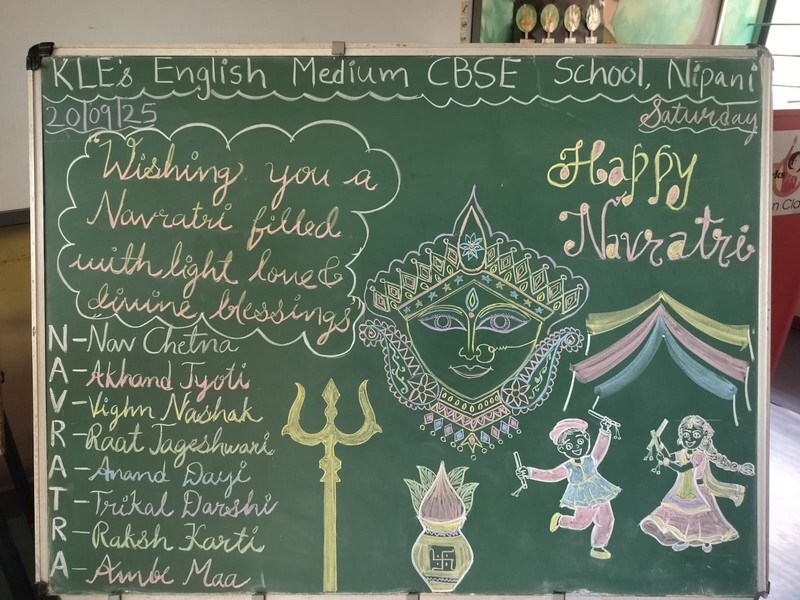 KLE's English Medium CBSE School, Nipani
20/09/25
Saturday
"Wishing you a
Navratri filled
with light love &
divine blessings"
Happy
Navratri
N - Nav Chetna
A - Akhand Jyoti
V - Vighn Nashak
R - Raat Jageshwari
A - Anand Dayi
T - Trikal Darshi
R - Raksh Karti
A - Ambe Maa